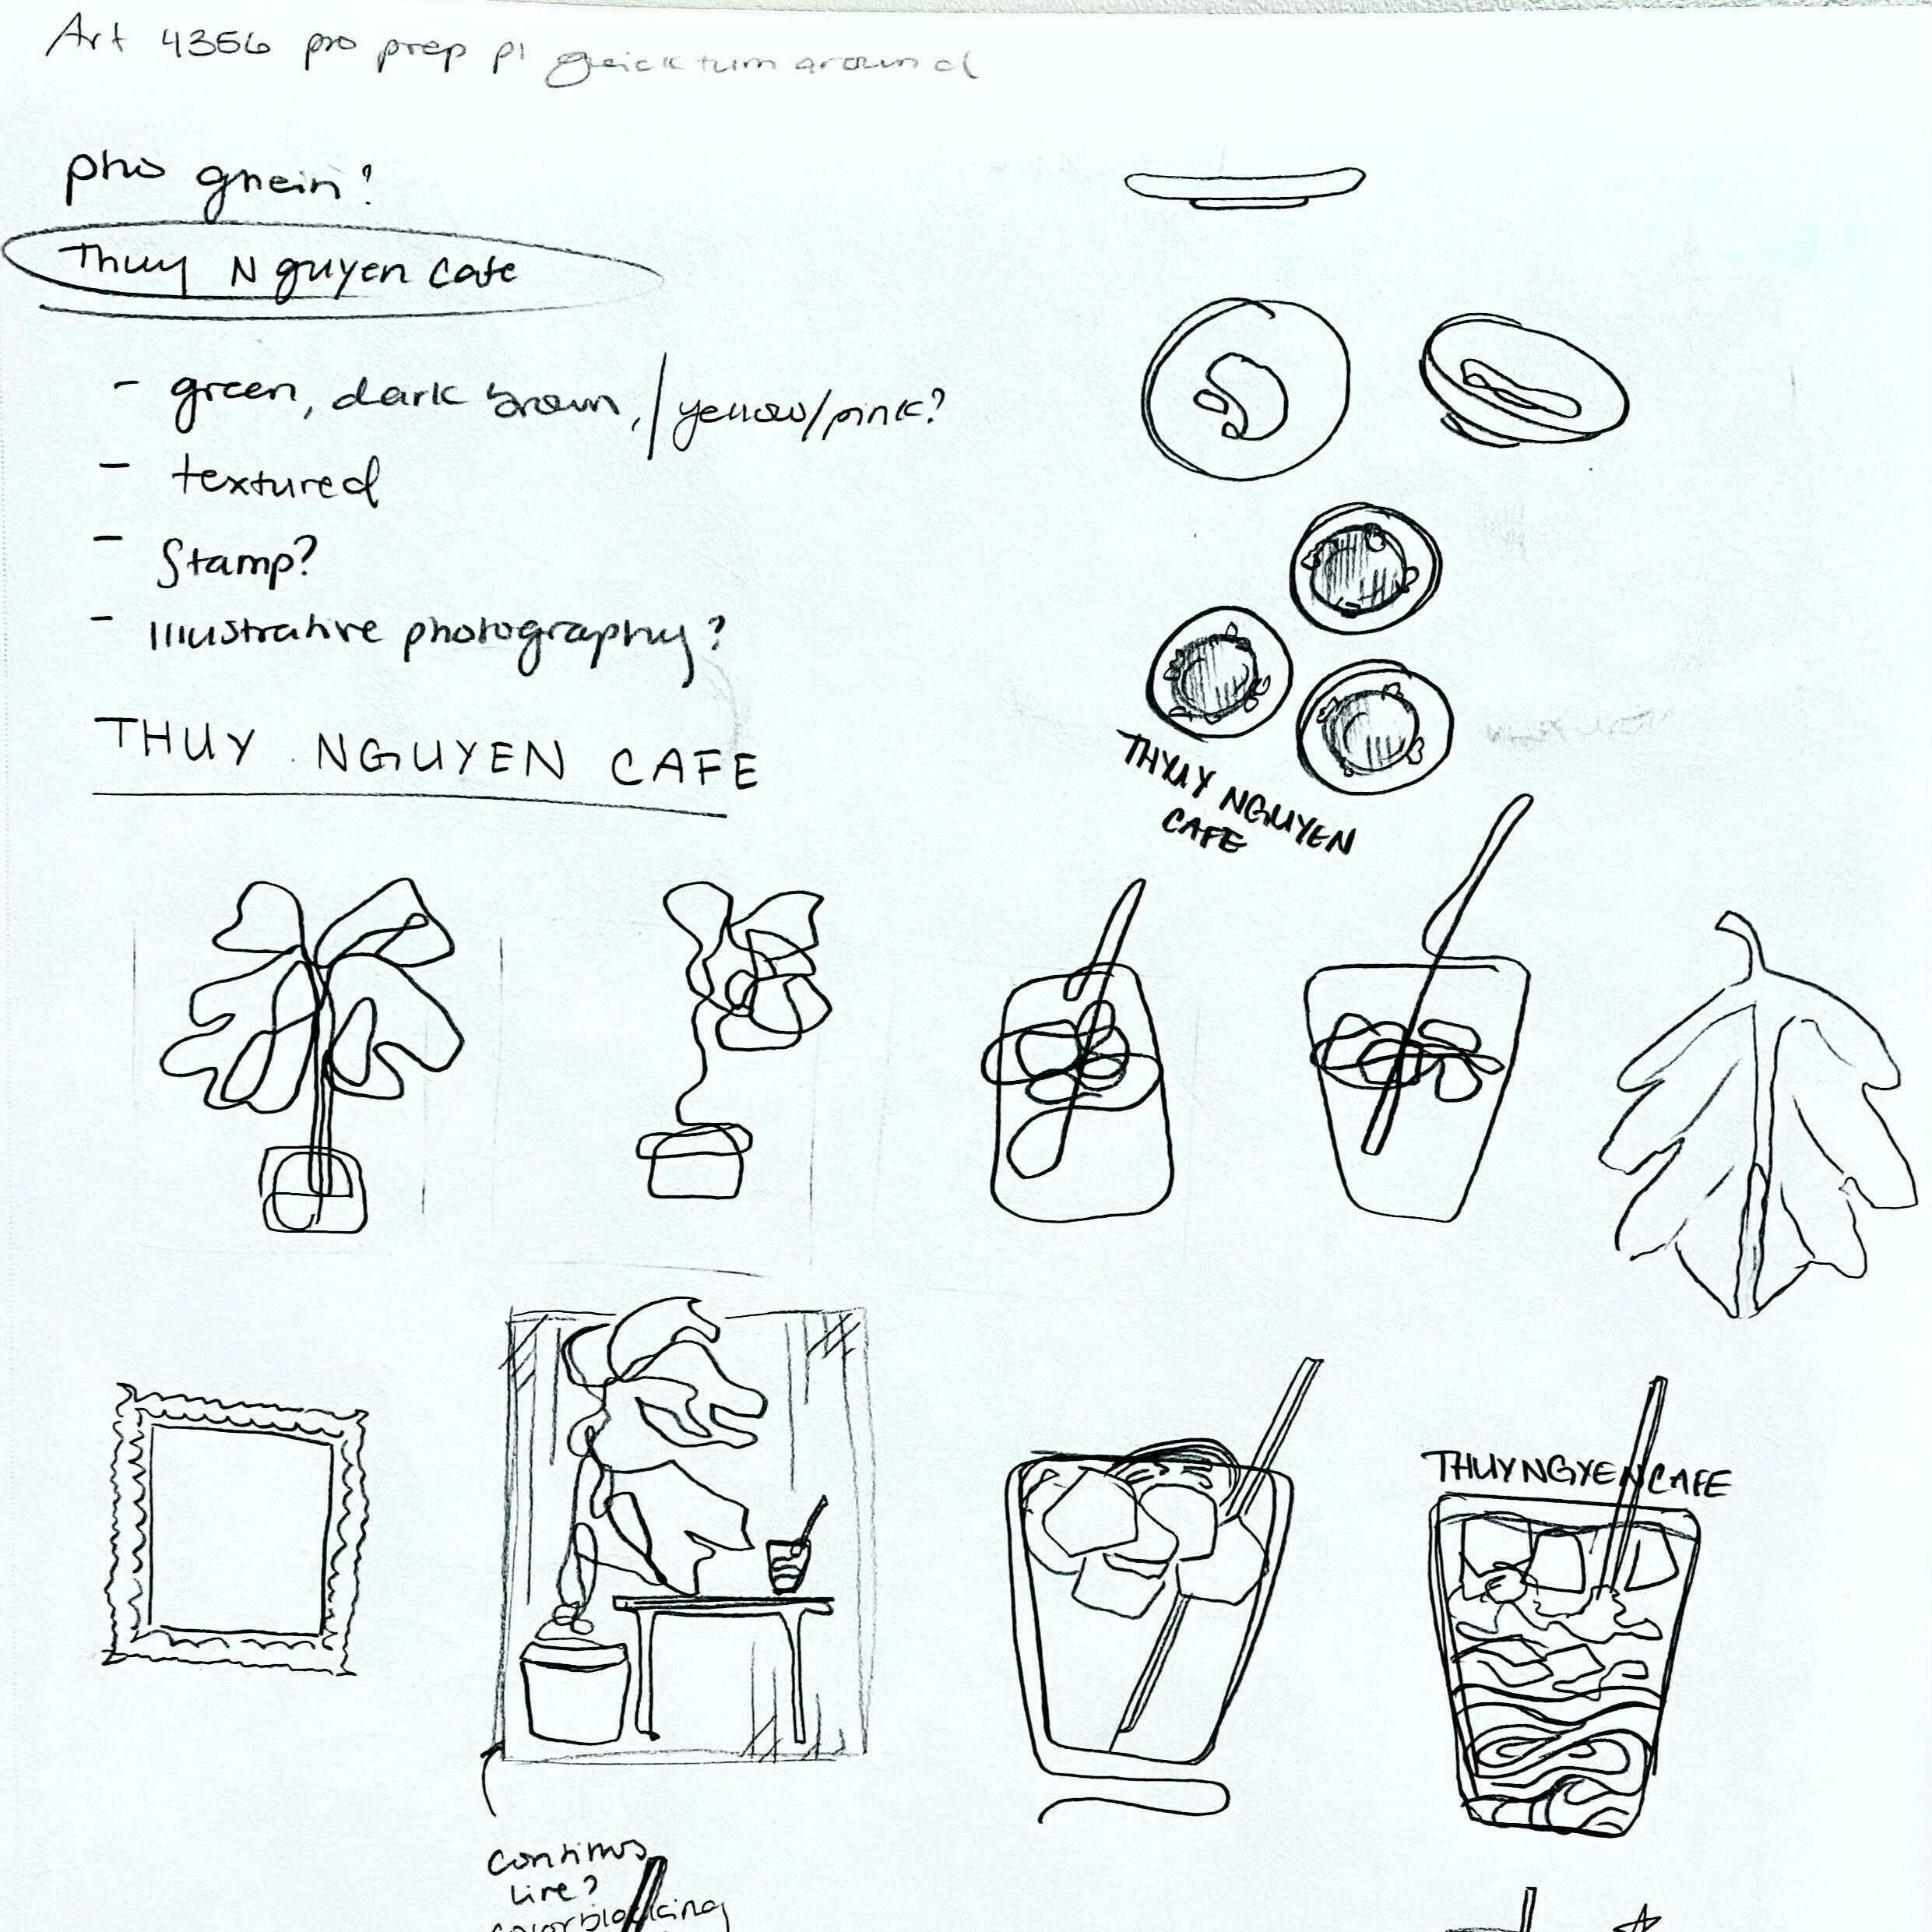 Art 4356 pro prep p1 quick turn around
pho ghein?
Thuy Nguyen Cafe
- green, dark brown, / yellow/pink?
- textured
- Stamp?
- Illustrative photography?
THUY NGUYEN CAFE
THYUY NGUYEN
CAFE
THUYNGYENCAFE
Continus
Line?
colorblocking